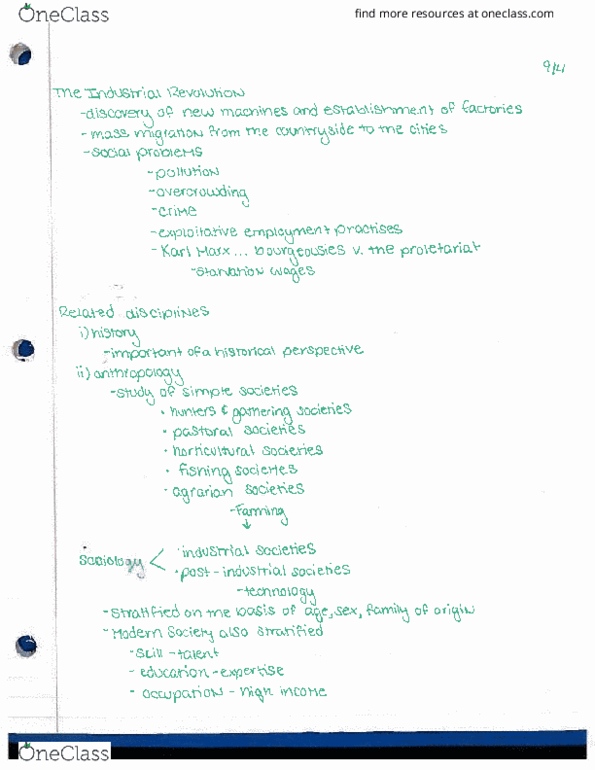 OneClass
find more resources at oneclass.com
9/4
The Industrial Revolution
-discovery of new machines and establishment of factories
-mass migration from the countryside to the cities
-social problems
-pollution
-overcrowding
-crime
-exploitative employment practises
-Karl Marx... bourgeousies v. the proletariat
-starvation wages
Related disciplines
i) history
-important of a historical perspective
ii) anthropology
-study of simple societies
• hunters & gathering societies
• pastoral societies
• horticultural societies
• fishing societies
• agrarian societies
-Farming
↓
Sociology < • industrial societies
• post-industrial societies
-technology
-Stratified on the basis of age, sex, family of origin
-Modern Society also stratified
-skill -talent
-education -expertise
-occupation - high income
OneClass